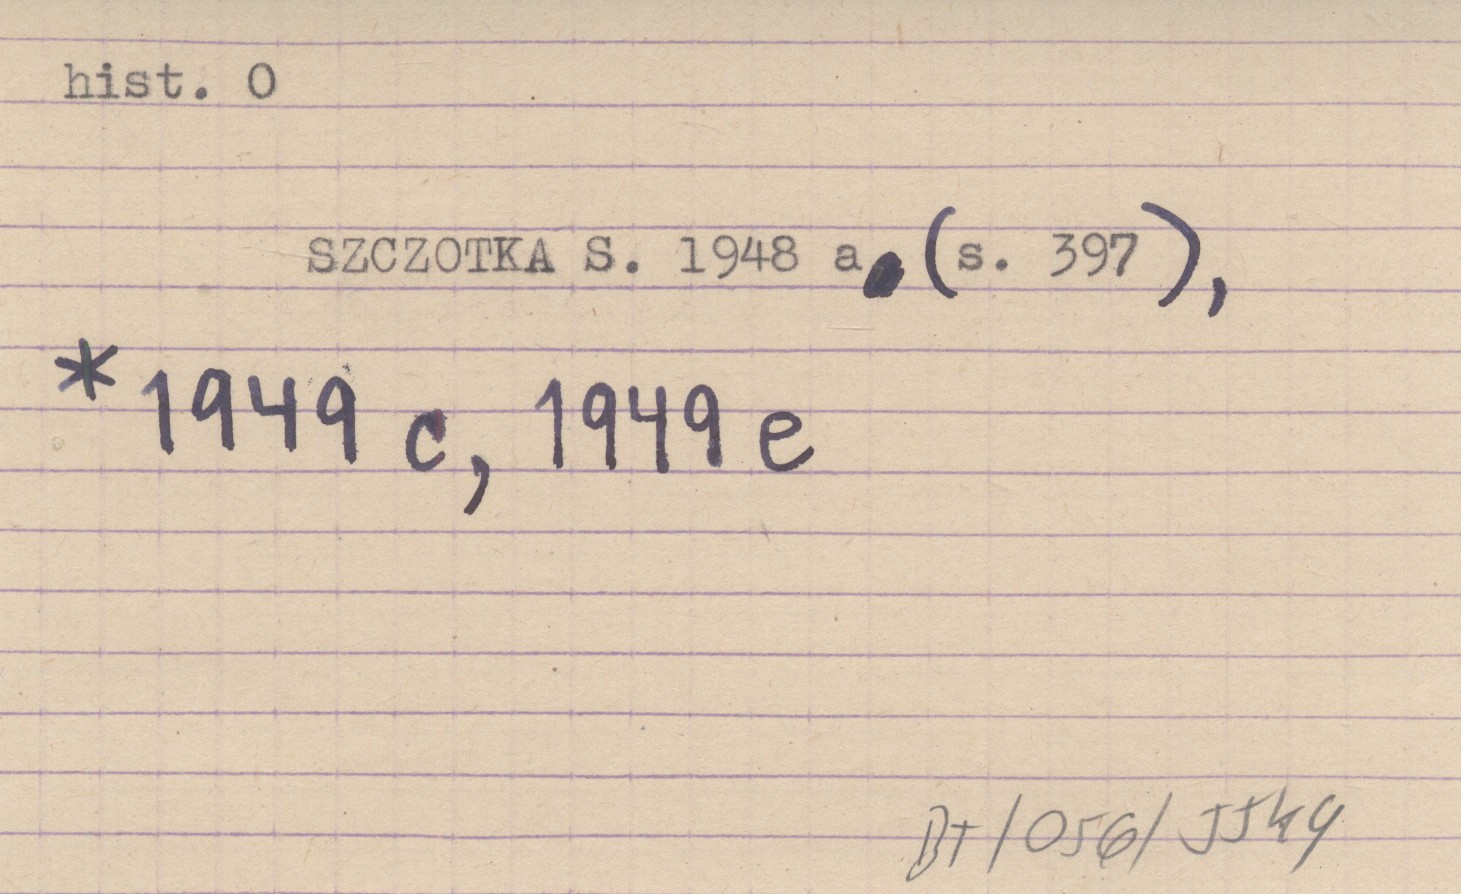 hist. O
SZCZOTKA S. 1948 a. (s. 397),
* 1949 c, 1949 e
BT/056/5549